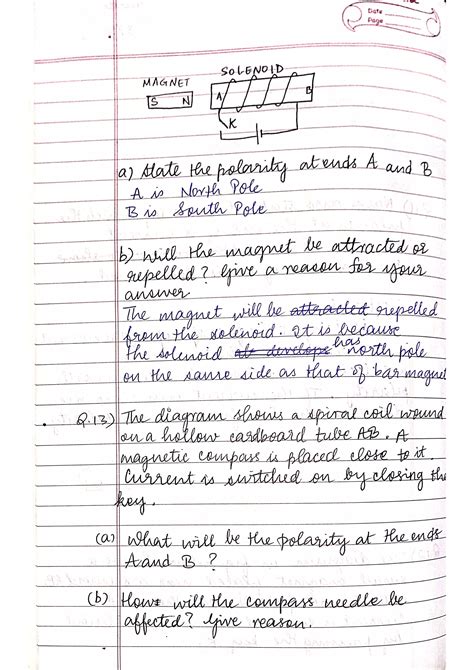 Date
Page
SOLENOID
MAGNET
S N
A B
K
a) State the polarity at ends A and B
A is North Pole
B is South Pole
b) Will the magnet be attracted or
repelled? Give a reason for your
answer
The magnet will be attracted repelled
from the solenoid. It is because
the solenoid develops has north pole
on the same side as that of bar magnet
Q.13) The diagram shows a spiral coil wound
on a hollow cardboard tube AB. A
magnetic compass is placed close to it.
Current is switched on by closing the
key.
(a) What will be the polarity at the ends
A and B ?
(b) How will the compass needle be
affected? Give reason.